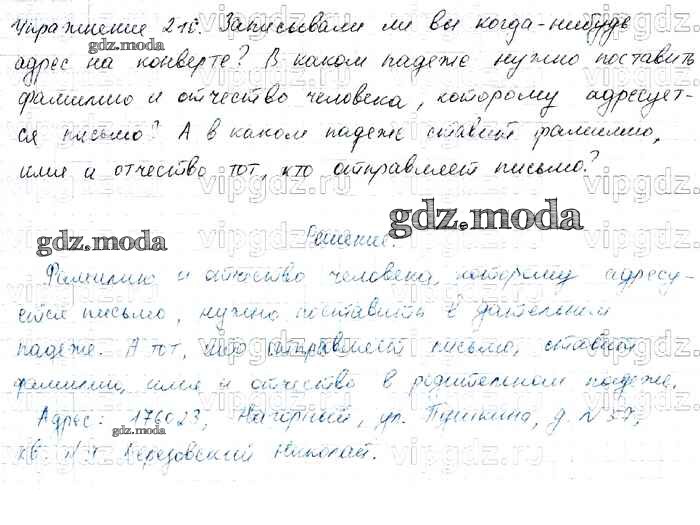 Упражнение 216. Записывали ли вы когда-нибудь
адрес на конверте? В каком падеже нужно поставить
фамилию и отчество человека, которому адресует-
ся письмо? А в каком падеже ставит фамилию,
имя и отчество тот, кто отправляет письмо?
Решение.
Фамилию и отчество человека, которому адресу-
ется письмо, нужно поставить в дательном
падеже. А тот, кто отправляет письмо, ставит
фамилию, имя и отчество в родительном падеже.
Адрес: 176023, Нагорный, ул. Пушкина, д. №37,
кв. Березовский Николай.
gdz.moda
gdz.moda
gdz.moda
gdz.moda
gdz.moda
vipgdz.ru